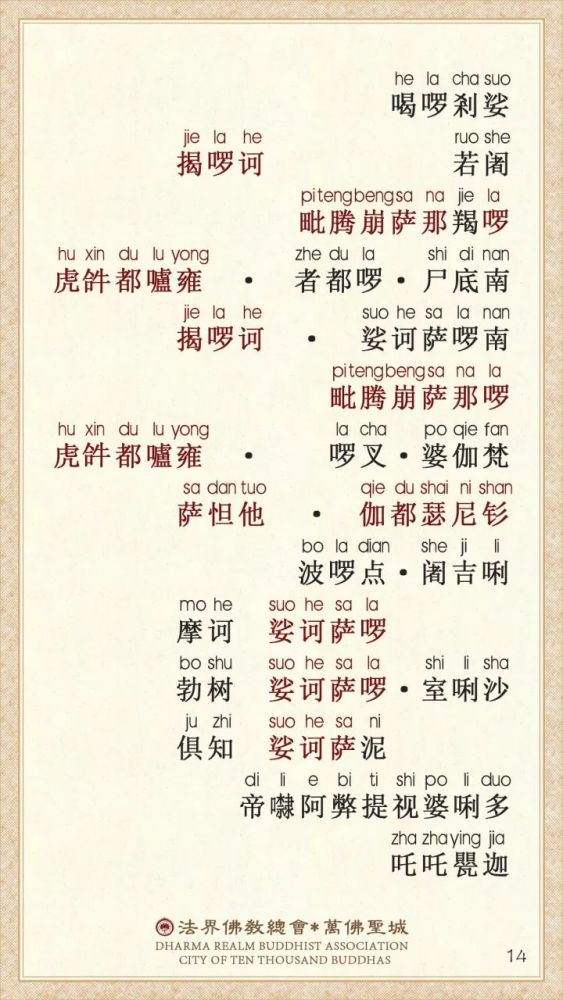 he la cha suo
喝啰刹娑
jie la he ruo she
揭啰诃 若阇
pi teng beng sa na jie la
毗腾崩萨那羯啰
hu xin du lu yong zhe du la shi di nan
虎𤙖都嚧雍 · 者都啰 · 尸底南
jie la he suo he sa la nan
揭啰诃 · 娑诃萨啰南
pi teng beng sa na la
毗腾崩萨那啰
hu xin du lu yong la cha po qie fan
虎𤙖都嚧雍 · 啰叉 · 婆伽梵
sa dan tuo qie du shai ni shan
萨怛他 · 伽都瑟尼钐
bo la dian she ji li
波啰点 · 阇吉唎
mo he suo he sa la
摩诃 娑诃萨啰
bo shu suo he sa la shi li sha
勃树 娑诃萨啰 · 室唎沙
ju zhi suo he sa ni
俱知 娑诃萨泥
di li e bi ti shi po li duo
帝㘑阿弊提视婆唎多
zha zha ying jia
吒吒甖迦
法界佛教總會*萬佛聖城
DHARMA REALM BUDDHIST ASSOCIATION
CITY OF TEN THOUSAND BUDDHAS
14